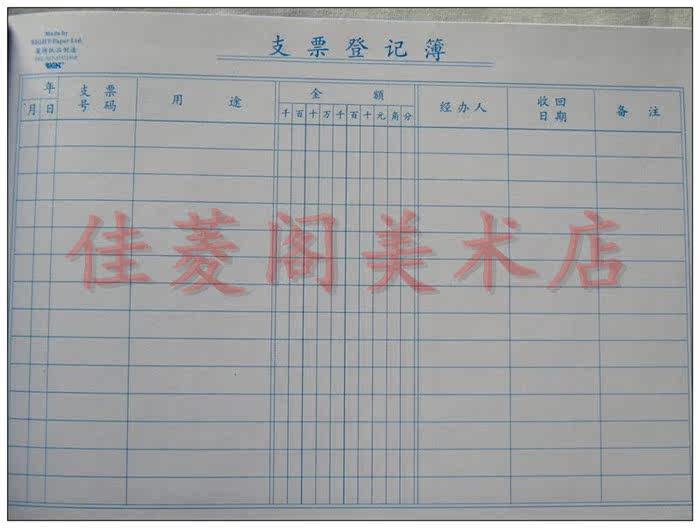 Made by
Paper Ltd.
支票登记簿
年
月 日
支票
号码
用途
金额
千 百 十 万 千 百 十 元 角 分
经办人
收回
日期
备注
佳菱阁美术店